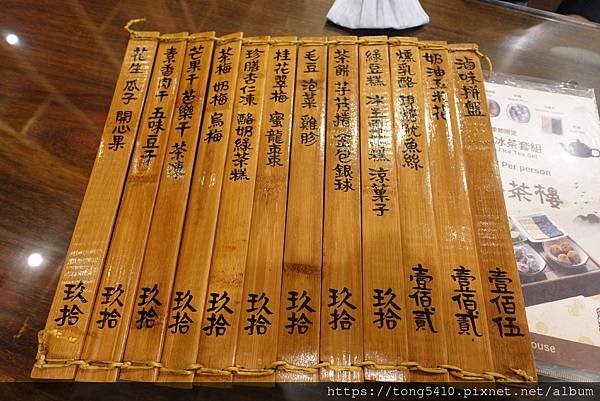 滷味拼盤 壹佰伍
奶油玉米花 壹佰貳
燻乳酪 碳烤魷魚絲 壹佰貳
綠豆糕 涼菓子 玖拾
茶餅 芋烤捲 蛋包銀球 玖拾
毛豆 泡菜 雞胗 玖拾
桂花翠梅 蜜龍棗 玖拾
珍膳杏仁凍 酪奶綠茶糕 玖拾
茶梅 奶梅 烏梅 玖拾
芒果干 芭樂干 茶凍 玖拾
素香肉干 五味豆干 玖拾
花生 瓜子 開心果 玖拾
冰茶套組
Ice Tea Set
Per person
茶樓
https://tong5410.pixnet.net/album